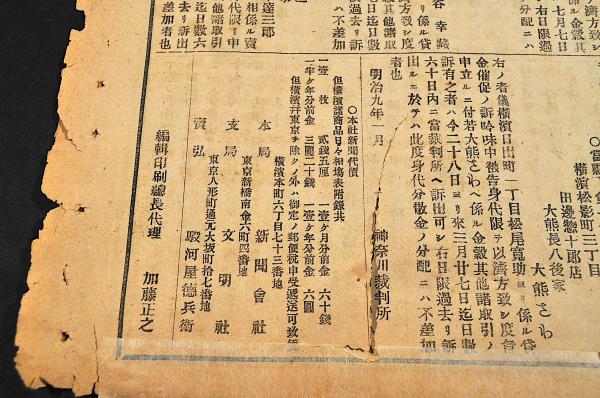 〇當
金
横濱松影町三丁目
田邊惣十郎店
大熊長八後家
大熊さわ
右ノ者儀横濱日出町一丁目松尾寛助ヨリ係ル貸
金催促ノ訴吟味中被告身代限ヲ以濟方致シ度旨
申立ルニ付若大熊さわヘ係ル金穀其他諸取引ノ
訴有之者ハ今二十八日ヨリ來三月廿七日迄日數
六十日内ニ當裁判所ヘ訴出可シ右日限過去リ訴
出ルニ於テハ此度身代分散金ノ分配ニハ不差加
者也
明治九年一月
神奈川裁判所
〇本社新聞代價
但横濱諸商品日々相塲表附録共
一壹枚 貳錢五厘 一壹ヶ月分前金 六十錢
一半ヶ年分前金 三圓二十錢 一壹ヶ年分前金 六圓
但横濱并東京ヲ除クノ外ハ御定ノ郵便税申受遞送可致候
横濱本町六丁目七十三番地
本局 新聞會社
東京新橋南金六町四番地
支局 文明社
東京人形町通元大坂町拾七番地
賣弘 駿河屋德兵衞
編輯印刷總長代理 加藤正之
谷幸
リ係ル貸
濟方致シ度
其他諸取引
七月七日
迄日數
右日限過
分配ニハ
達三郎
相係ル賣
代限リ申
他諸取引
迄日數六
去リ訴出
差加者也